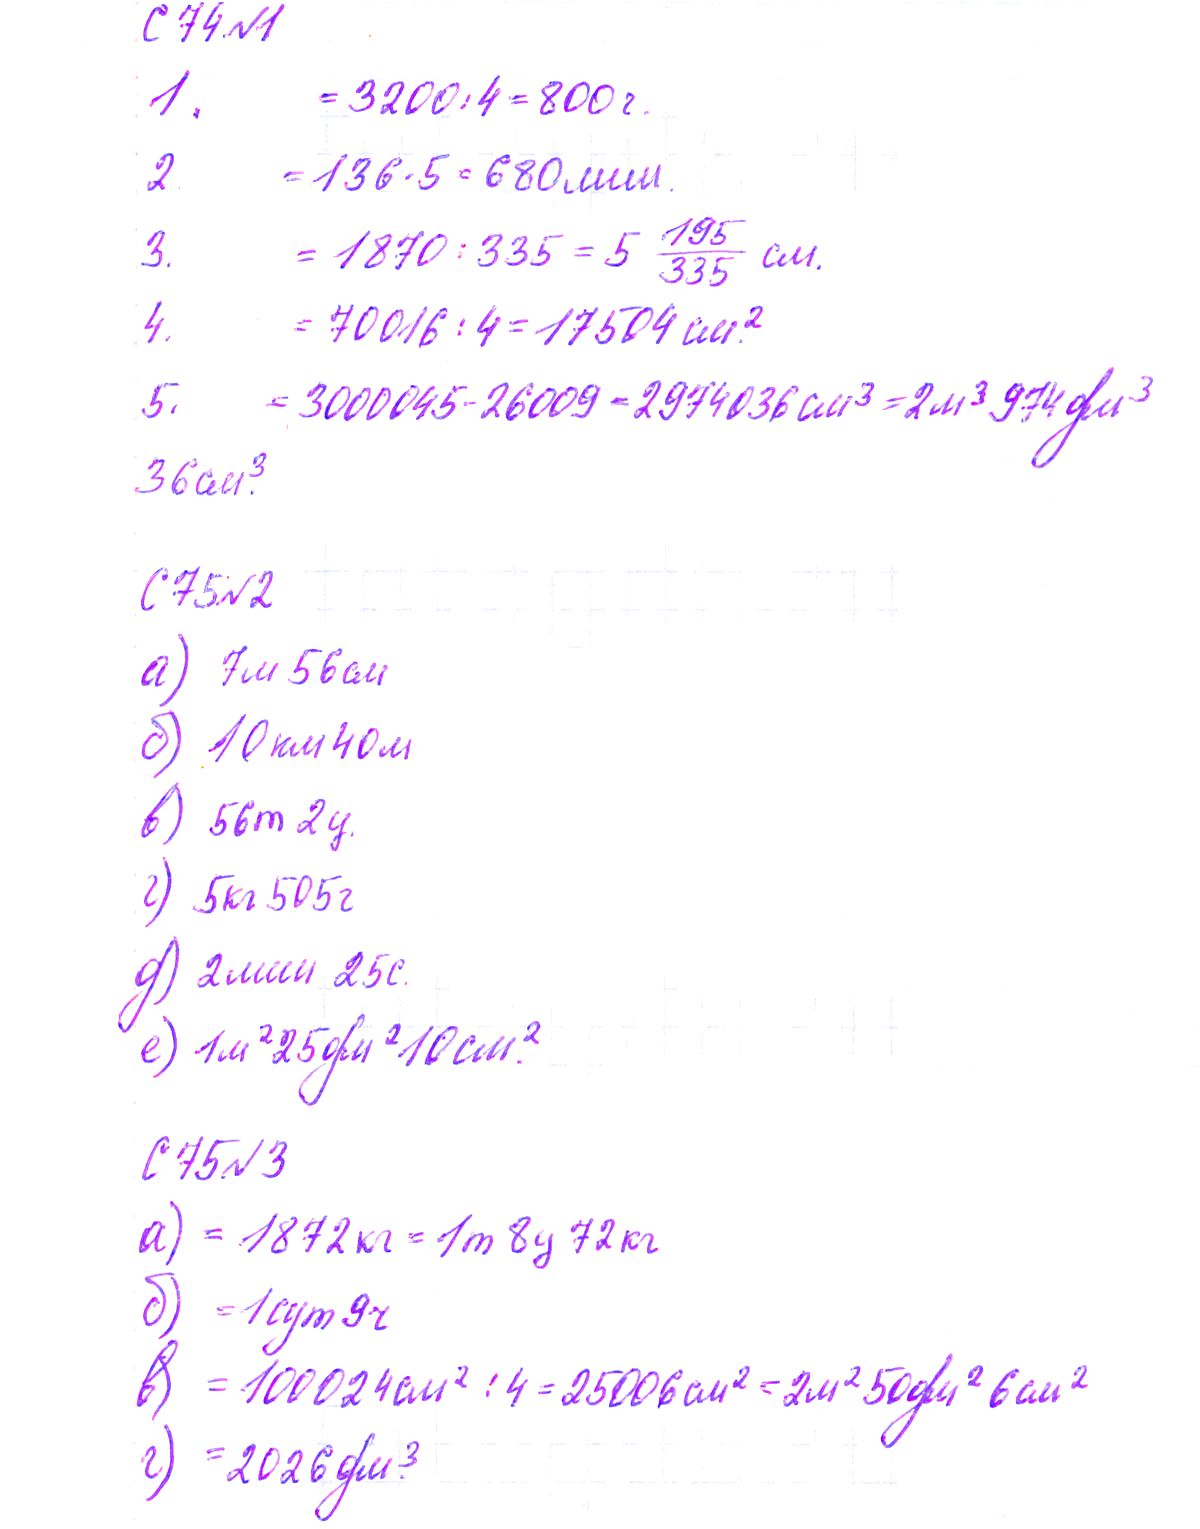 С 74.№1
1. = 3200:4 = 800г.
2 = 136·5 = 680мин.
3. = 1870 : 335 = 5 195/335 см.
4. = 70016 : 4 = 17504 см².
5. = 3000045-26009 = 2974036см³ = 2м³ 974дм³
36см³.
С 75.№2
а) 7м 56см
б) 10км 40м
в) 56т 2ц.
г) 5кг 505г
д) 2мин 25с.
е) 1м² 25дм² 10см².
С 75.№3
а) = 1872кг = 1т 8ц 72кг
б) = 1сут 9ч
в) = 100024см² : 4 = 25006см² = 2м² 50дм² 6см²
г) = 2026дм³.